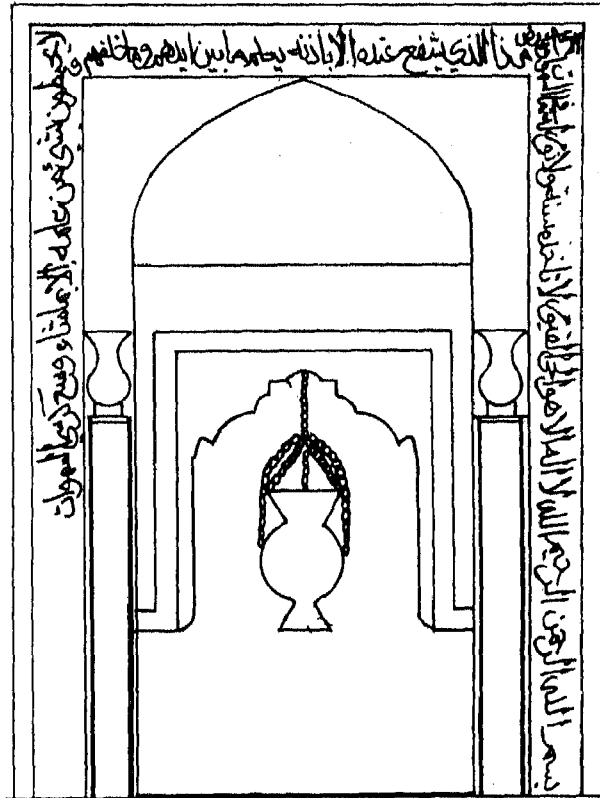 بسم الله الرحمن الرحيم الله لا اله الا هو الحي القيوم لا تاخذه سنة ولا نوم له ما في السموات
من ذا الذي يشفع عنده الا باذنه يعلم ما بين ايديهم وما خلفهم و
لا يحيطون بشيء من علمه الا بما شاء وسع كرسيه السموات